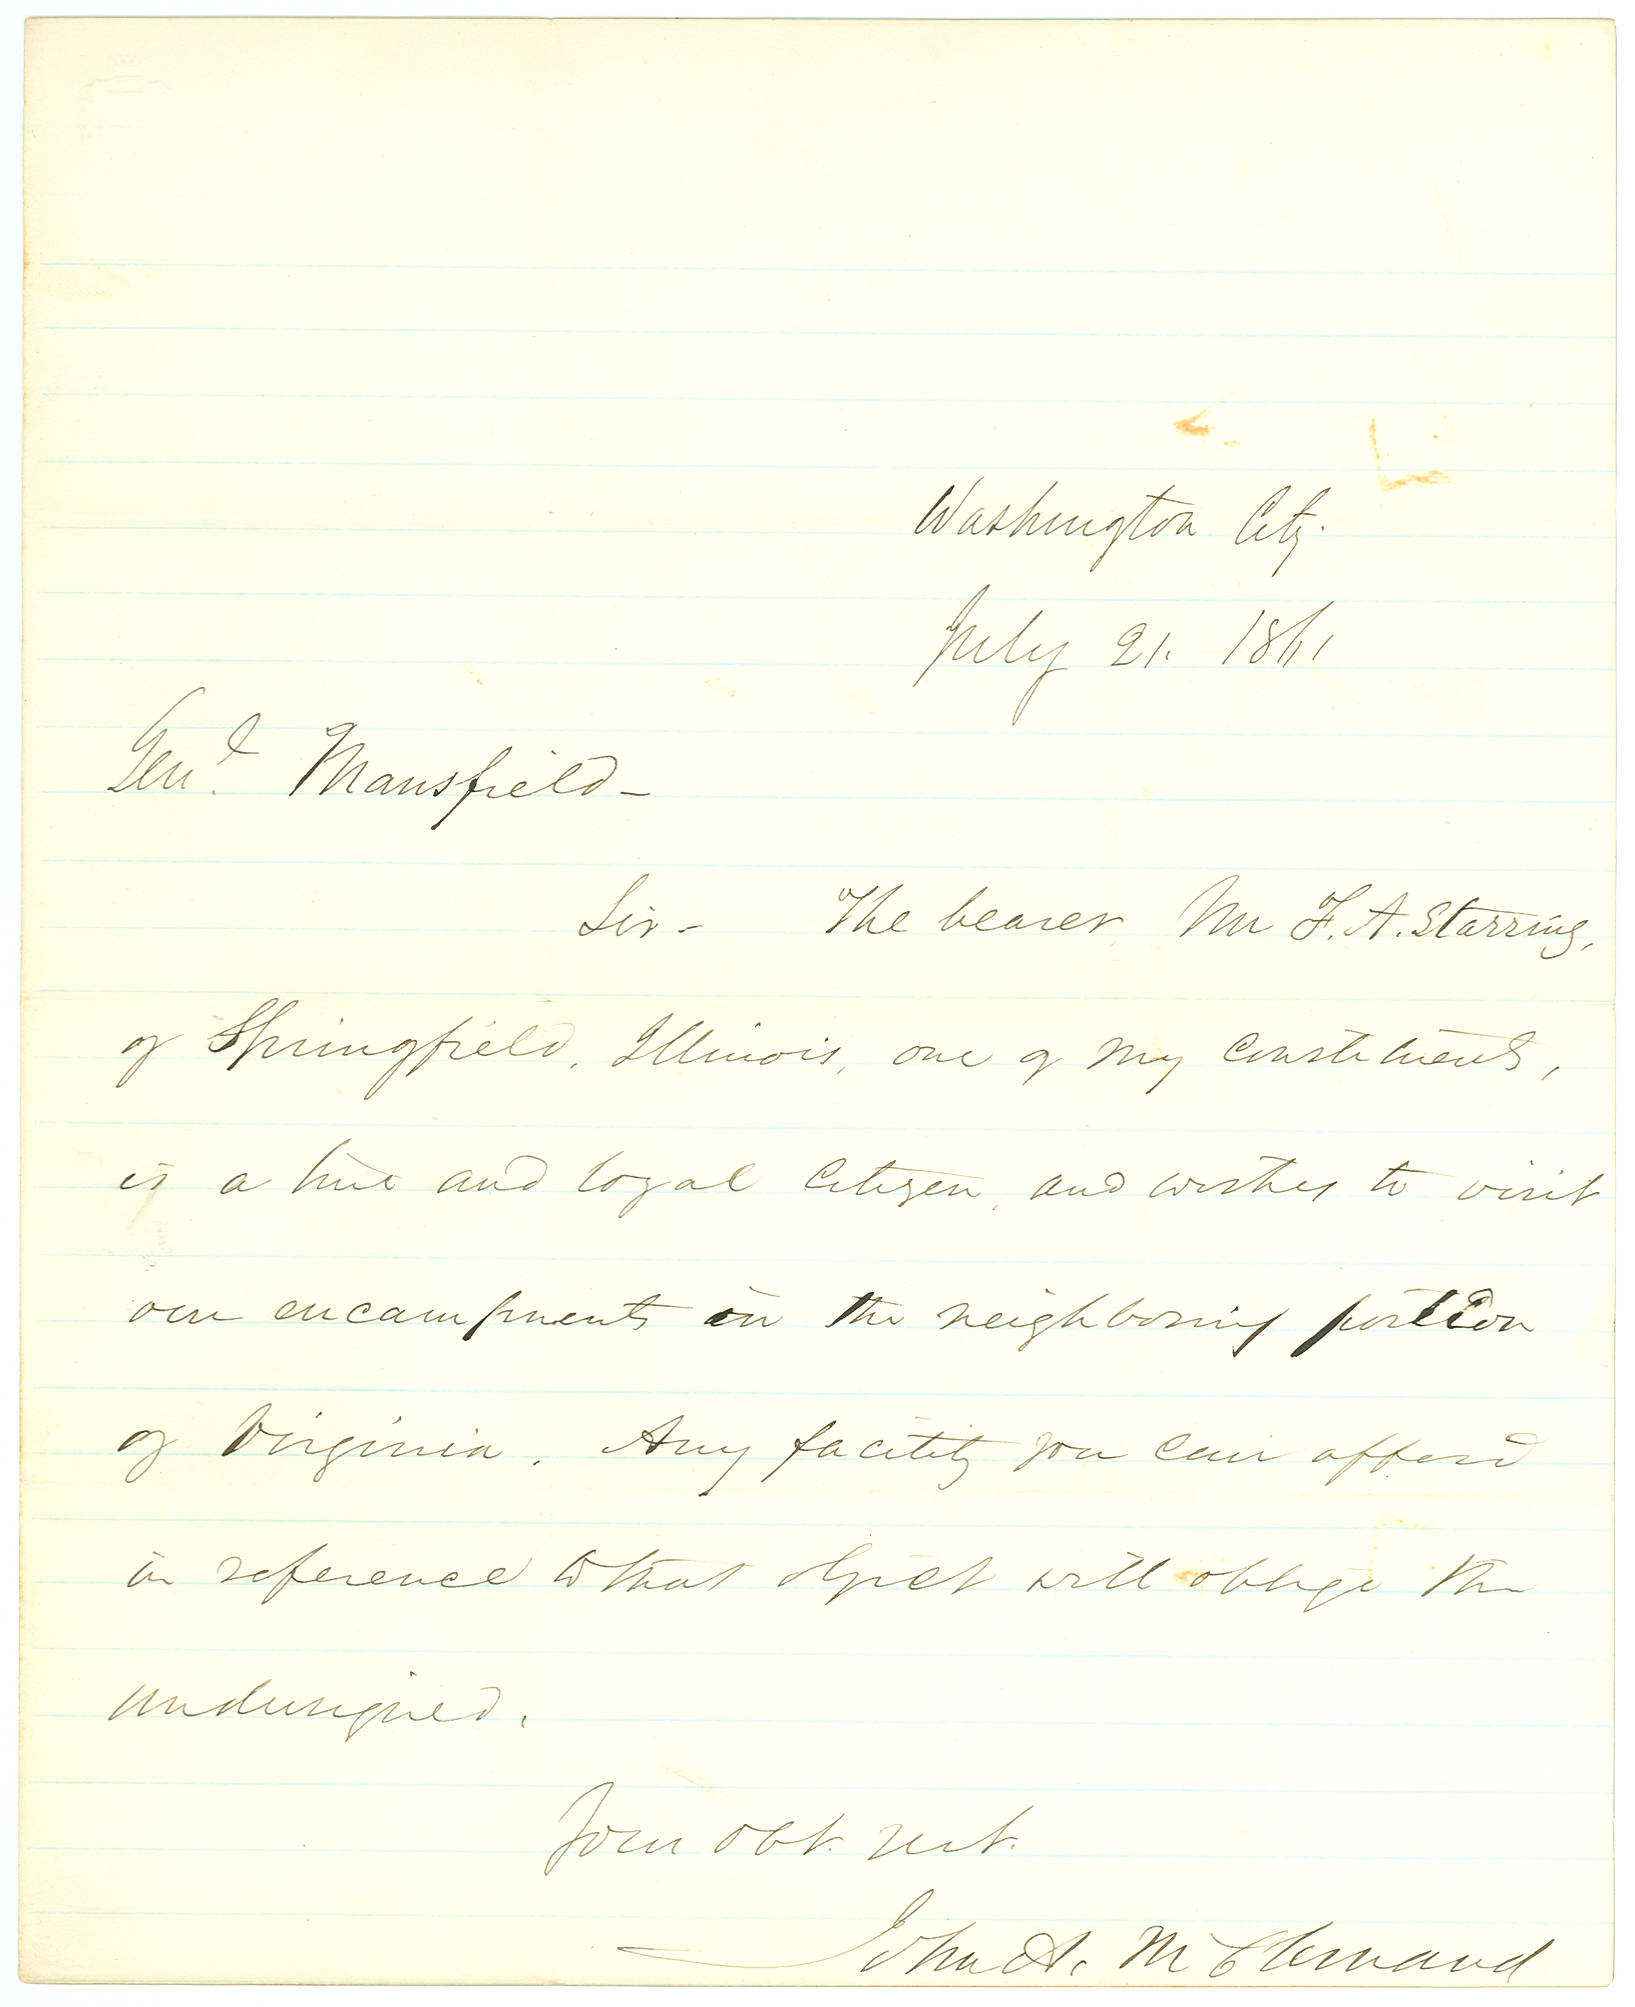 Washington City.
July 21. 1861
Genl. Mansfield -
Sir - The bearer, Mr F. A. Starring,
of Springfield, Illinois, one of my constituents,
is a true and loyal citizen, and wishes to visit
our encampments in the neighboring portion
of Virginia. Any facility you can afford
in reference to that object will oblige the
undersigned.
Your obt. sevt.
John A. McClernand